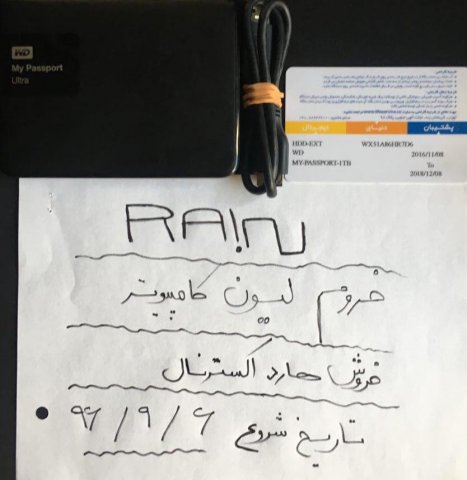 WD
My Passport
Ultra
پشتیبان دنیای دیجیتال
HDD-EXT WX51AB6HR7D6
WD 2016/11/08
MY-PASSPORT-1TB To
2018/12/08
RA!N
فروم لیون کامپیوتر
فروش هارد اکسترنال
تاریخ شروع ۶ / ۹ / ۹۶